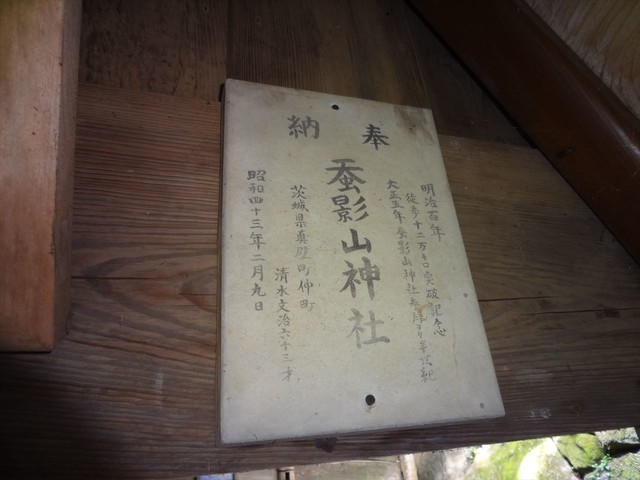 奉納
明治百年
徒歩十二万キロ突破記念
大正五年蚕影山神社参拝ヨリ半世紀
蚕影山神社
茨城県真壁町仲町
清水文治六十三才
昭和四十三年二月九日